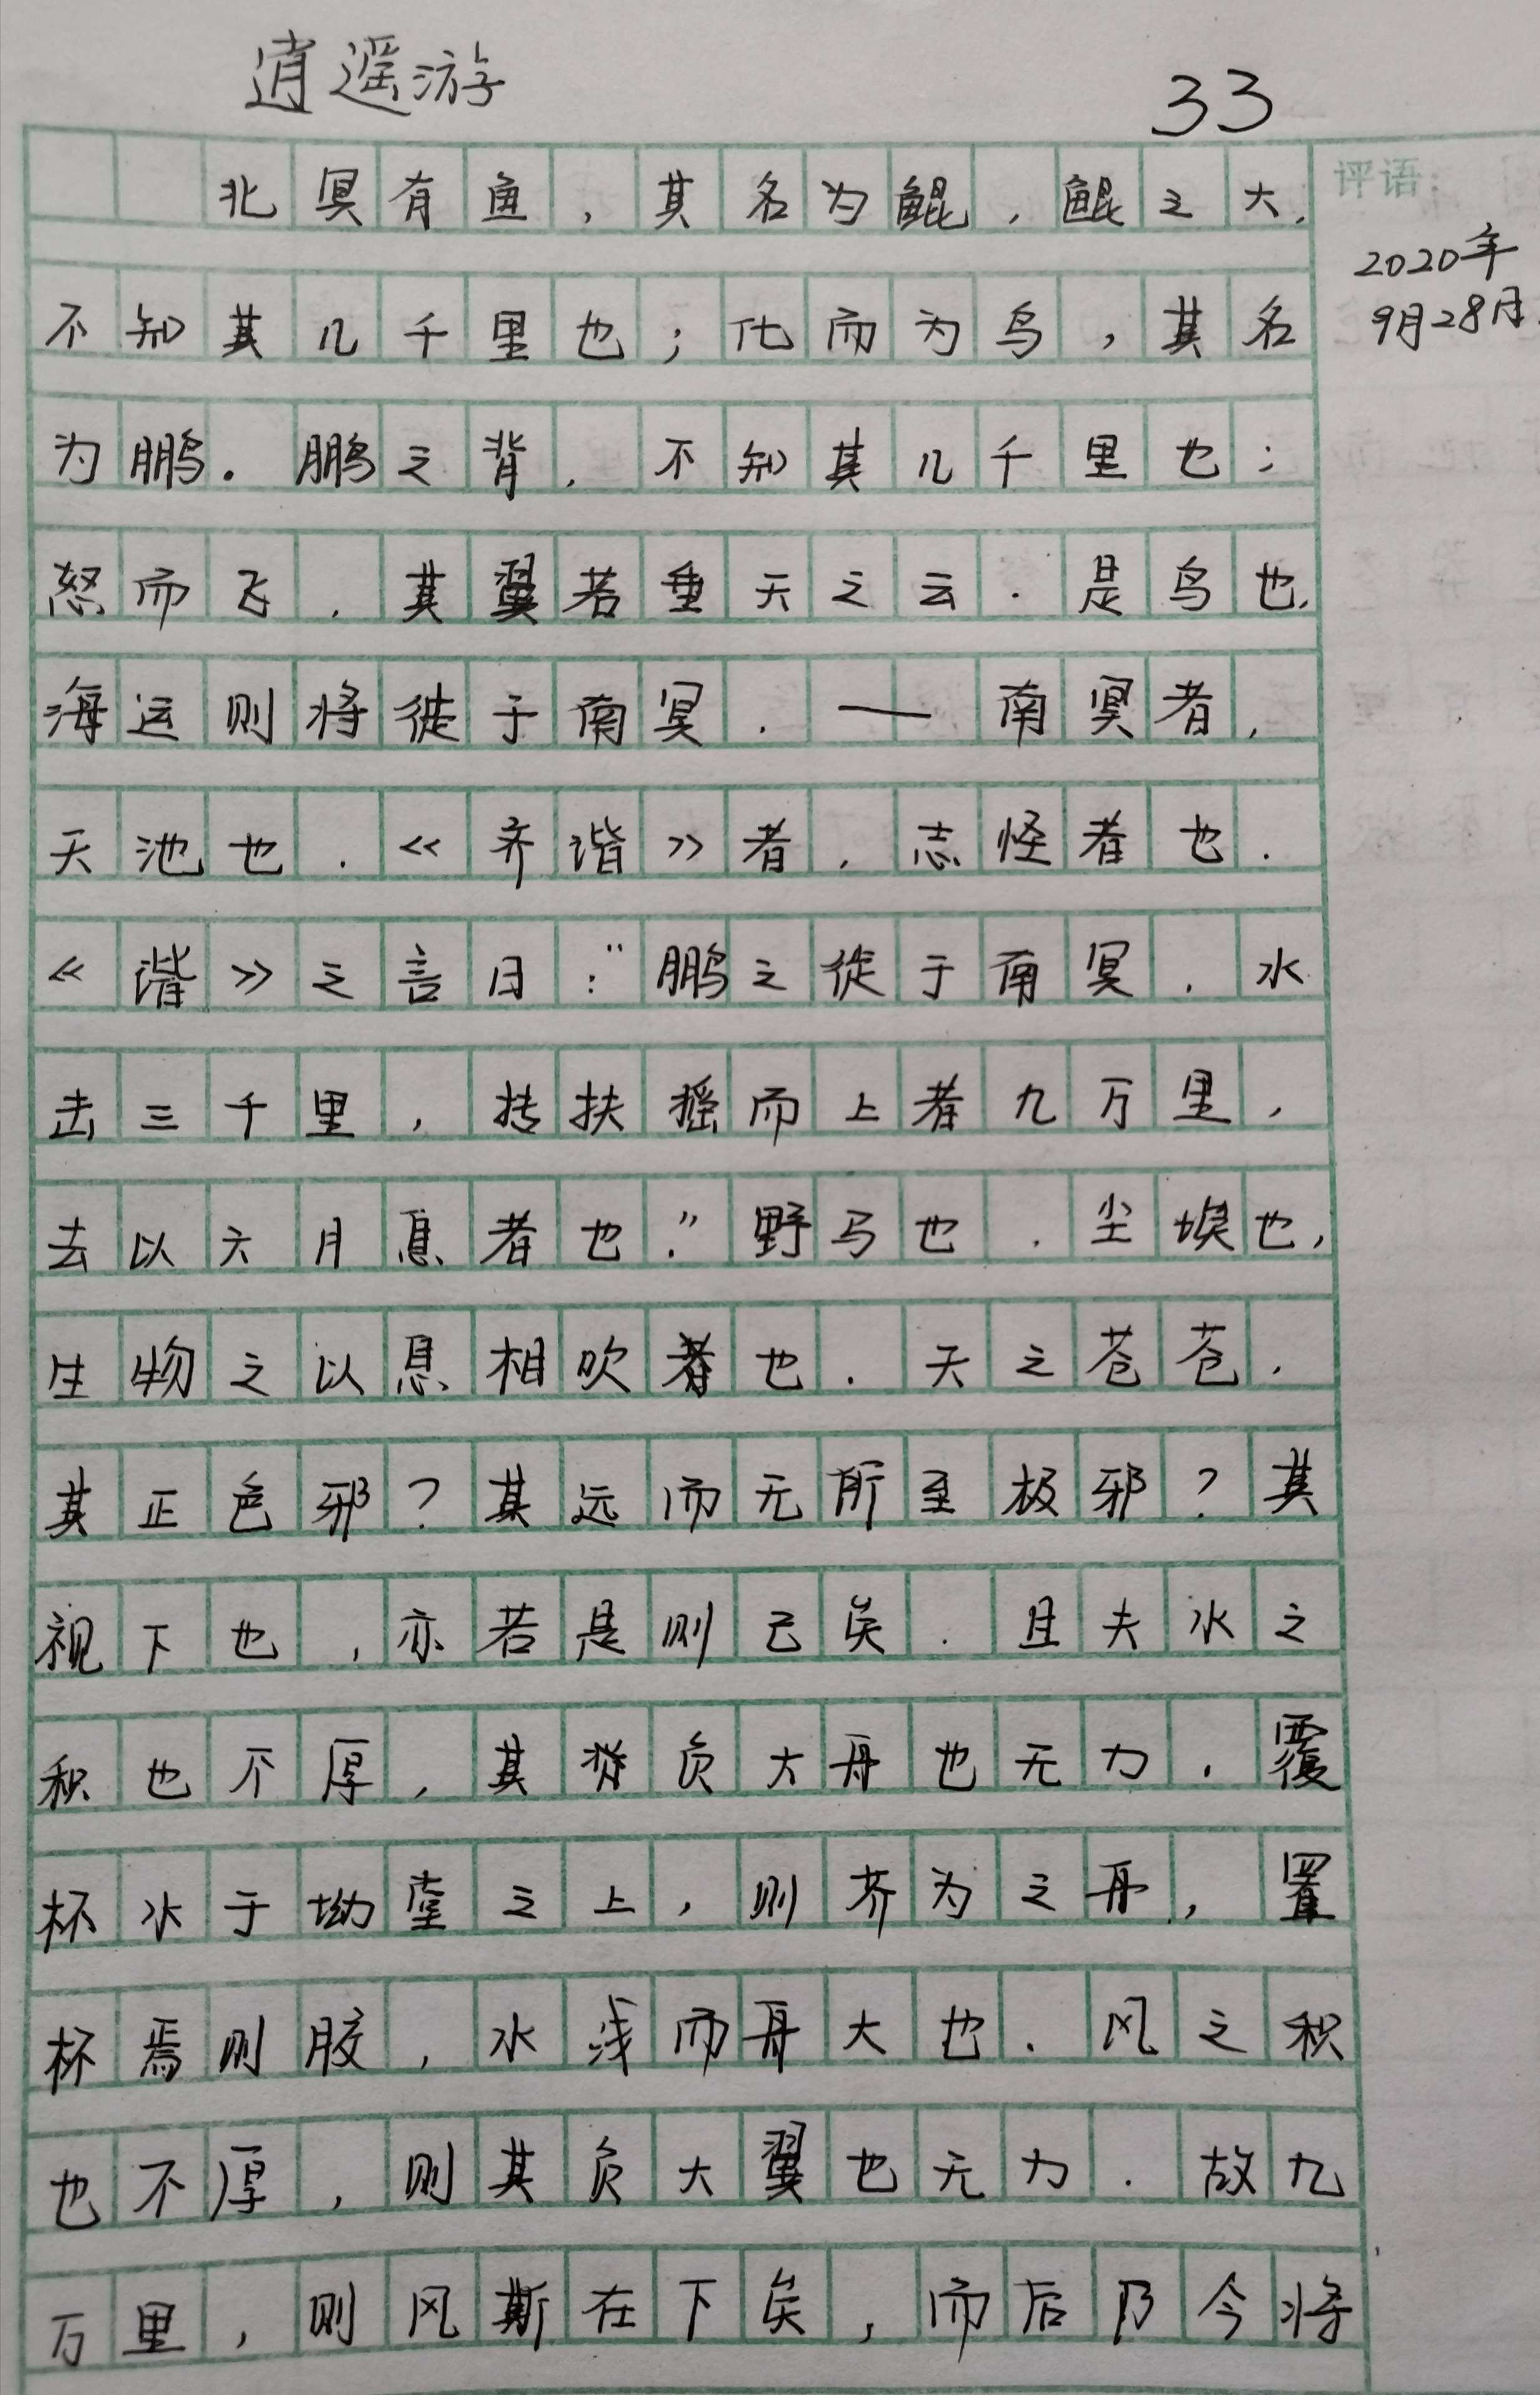 逍遥游
33
北冥有鱼，其名为鲲，鲲之大，
评语：
2020年
9月28日
不知其几千里也；化而为鸟，其名
为鹏．鹏之背，不知其几千里也；
怒而飞，其翼若垂天之云．是鸟也，
海运则将徙于南冥．——南冥者，
天池也．《齐谐》者，志怪者也．
《谐》之言曰：“鹏之徙于南冥，水
击三千里，抟扶摇而上者九万里，
去以六月息者也．”野马也．尘埃也，
生物之以息相吹者也．天之苍苍．
其正色邪？其远而无所至极邪？其
视下也，亦若是则已矣．且夫水之
积也不厚，其负大舟也无力．覆
杯水于坳堂之上，则芥为之舟，置
杯焉则胶，水浅而舟大也．风之积
也不厚，则其负大翼也无力．故九
万里，则风斯在下矣，而后乃今将